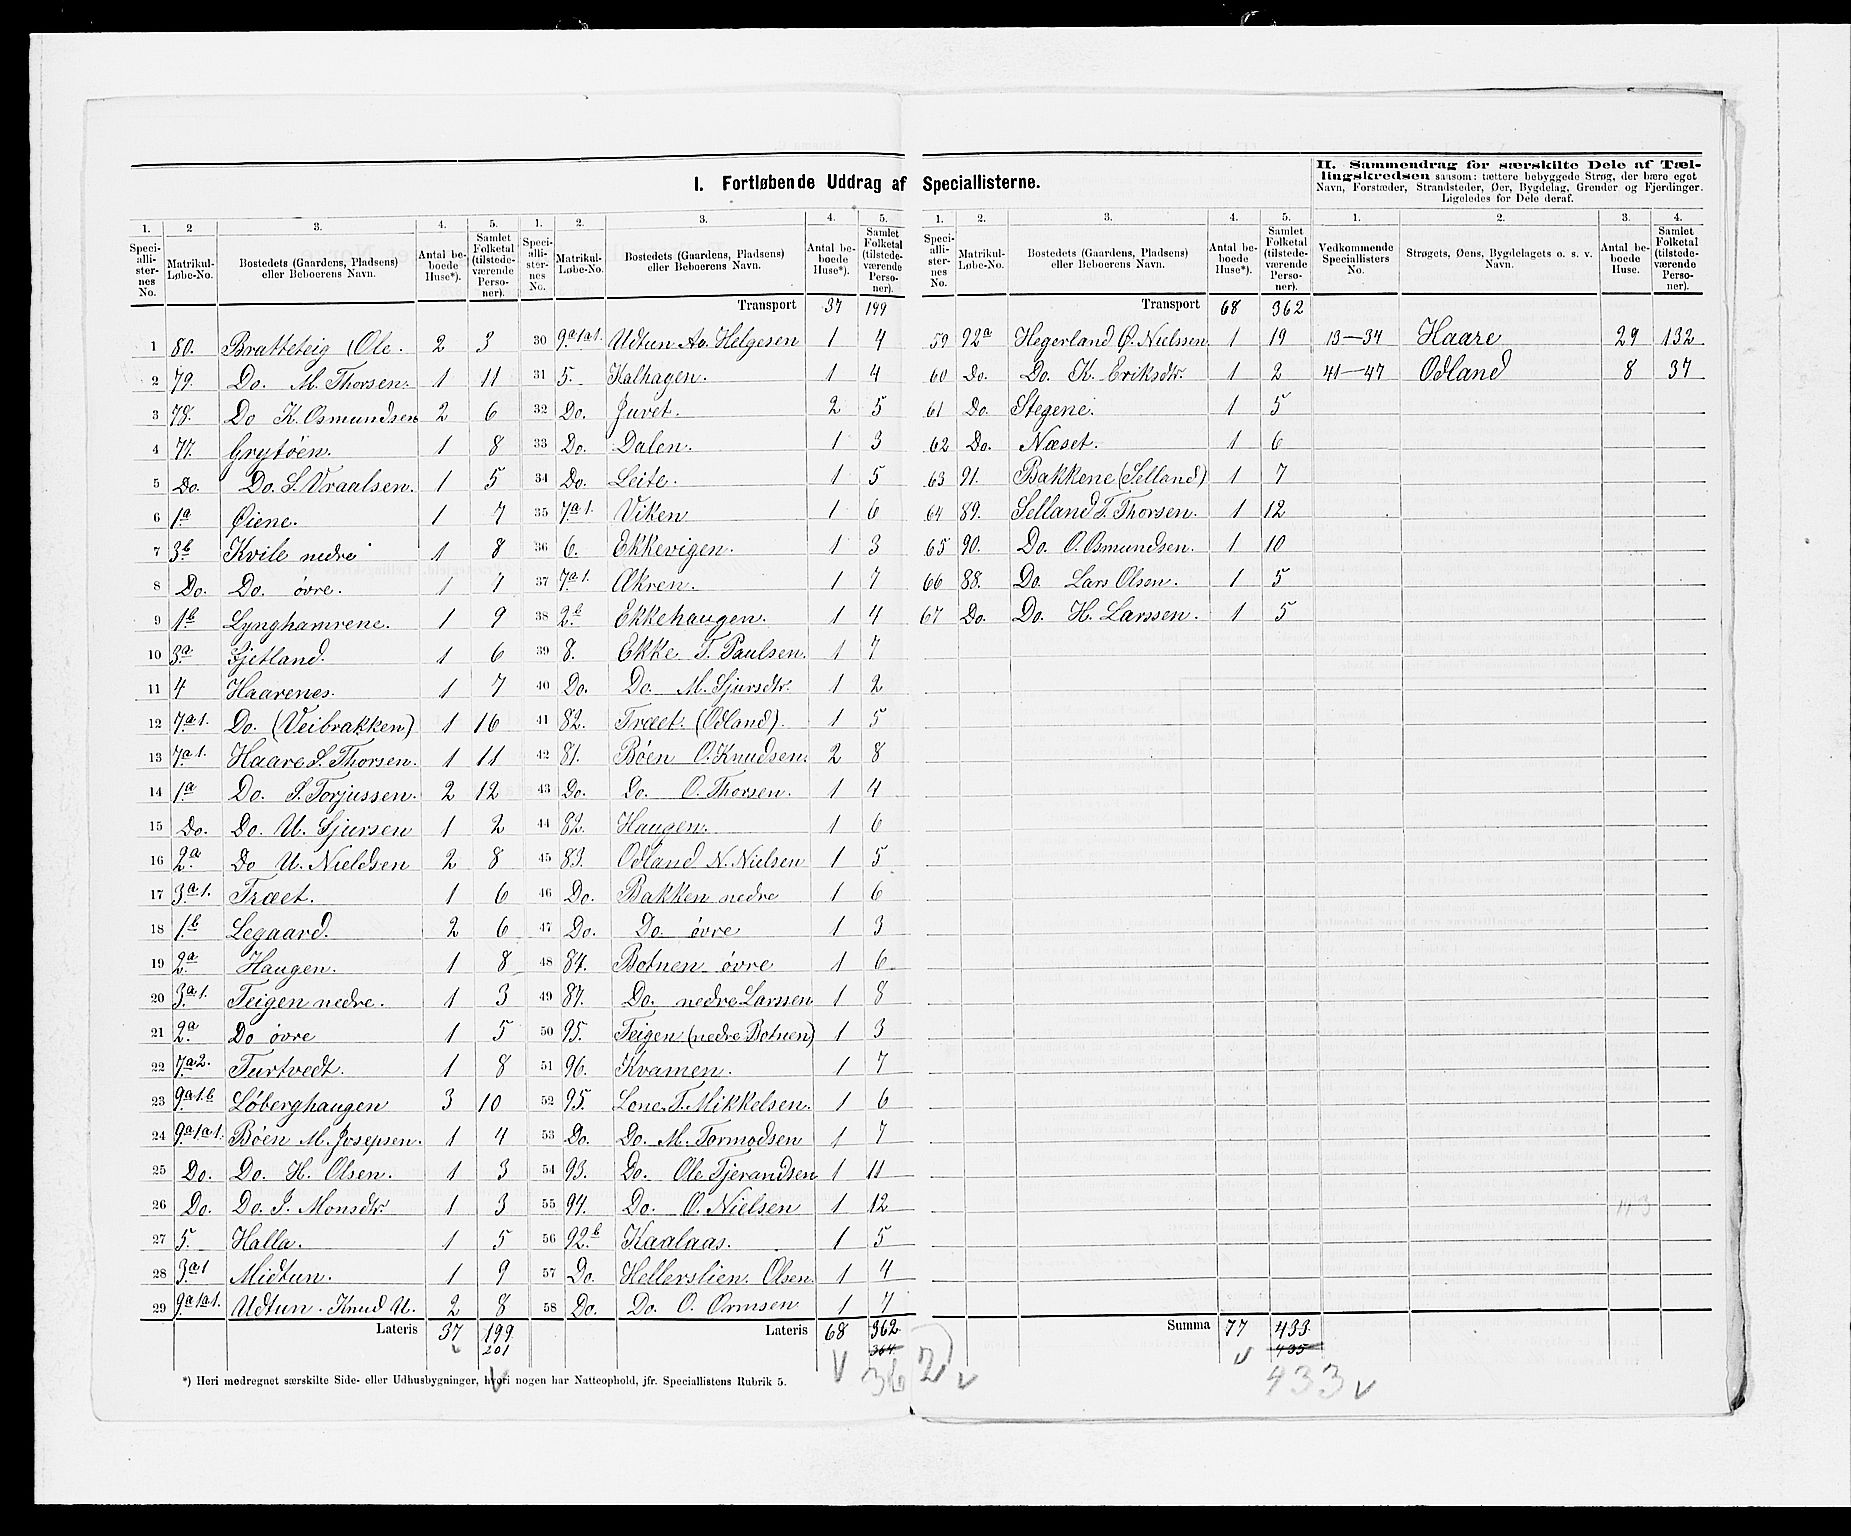 I. Fortløbende Uddrag af Speciallisterne.
II. Sammendrag for særskilte Dele af Tæl-
lingskredsen saasom: tættere bebyggede Strøg, der bære eget
Navn, Forstæder, Strandsteder, Øer, Bygdelag, Grender og Fjerdinger.
Ligeledes for Dele deraf.
1. 2 3. 4. 5.
Speciallisternes No. Matrikul-Løbe-No. Bostedets (Gaardens, Pladsens) eller Beboerens Navn. Antal beboede Huse*). Samlet Folketal (tilstedeværende Personer).
1 80. Bratteteig (Ole. 2 3
2 79. Do. M. Thorsen. 1 11
3 78. Do K. Osmundsen 2 6
4 77. Grytøen. 1 8
5 Do. Do. S. Vraalsen. 1 5
6 1a Øiene. 1 7
7 3b Kvile nedre 1 8
8 Do. Do. øvre. 1 7
9 1b Lynghamrene. 1 9
10 3a Fjetland. 1 6
11 4 Haarenes. 1 7
12 7a1. Do. (Veibrakken) 1 16
13 7a1. Haare S. Thorsen. 1 11
14 1a Do. S. Torjussen. 2 12
15 Do. Do. U. Sjursen 1 2
16 2a Do U. Nieldsen 2 8
17 3a1. Træet. 1 6
18 1b Legaard. 2 6
19 2a Haugen. 1 8
20 3a1. Teigen nedre. 1 3
21 2a Do øvre 1 5
22 7a2. Turtvedt. 1 8
23 9a1b Løberghaugen 3 10
24 9a1a1. Bøen M. Josepsen. 1 4
25 Do. Do. H. Olsen. 1 3
26 Do. Do. I. Monsdtr. 1 3
27 5. Halla. 1 5
28 3a1 Midtun. 1 9
29 9a1a1. Udtun. Knud U. 2 8
Lateris 37 199
201
1. 2. 3. 4. 5.
Speciallisternes No. Matrikul-Løbe-No. Bostedets (Gaardens, Pladsens) eller Beboerens Navn. Antal beboede Huse*). Samlet Folketal (tilstedeværende Personer).
Transport 37 199
30 9a1a1. Udtun Av. Helgesen 1 4
31 5. Kalhagen. 1 4
32 Do. Juvet. 2 5
33 Do. Dalen. 1 3
34 Do. Leite. 1 5
35 7a1. Viken 1 6
36 6. Ekkevigen. 1 3
37 7a1. Ækren. 1 7
38 2b Ekkehaugen. 1 4
39 8. Ekke T. Paulsen. 1 7
40 Do. Do. M. Sjursdtr. 1 2
41 82. Træet. (Odland). 1 5
42 81. Bøen O. Knudsen. 2 8
43 Do. Do. O. Thorsen. 1 4
44 82. Haugen. 1 6
45 83. Odland N. Nielsen 1 5
46 Do. Bakken nedre 1 6
47 Do. Do øvre 1 3
48 84. Botnen øvre 1 6
49 87. Do. nedre Larssen 1 8
50 95. Teigen (nedre Botnen) 1 3
51 96. Kvamen. 1 7
52 95. Lone. T. Mikkelsen. 1 6
53 Do. Do. M. Tormodsen 1 7
54 93. Do. Ole Tjerandsen 1 11
55 94. Do. O. Nielsen 1 12
56 92.b Kaalaas. 1 5
57 Do. Hellerslien. Olsen. 1 4
58 Do. Do. O. Ormsen 1 7
Lateris 68 362
364
362
1. 2. 3. 4. 5.
Speciallisternes No. Matrikul-Løbe-No. Bostedets (Gaardens, Pladsens) eller Beboerens Navn. Antal beboede Huse*). Samlet Folketal (tilstedeværende Personer).
Transport 68 362
59 92a Hegerland Ø. Nielssen 1 19
60 Do. Do. K. Eriksdtr. 1 2
61 Do. Stegene. 1 5
62 Do. Næset. 1 6
63 91. Bakkene (Selland) 1 7
64 89. Selland T. Thorsen. 1 12
65 90. Do. O. Osmundsen. 1 10
66 88. Do. Lars Olsen. 1 5
67 Do. Do. H. Larssen. 1 5
Summa 77 433
435
433
1. 2. 3. 4.
Vedkommende Speciallisters No. Strøgets, Øens, Bygdelagets o. s. v. Navn. Antal beboede Huse. Samlet Folketal (tilstedeværende Personer).
13—34 Haare 29 132
41—47 Odland 8 37
*) Heri medregnet særskilte Side- eller Udhusbygninger, hvori nogen har Natteophold, jfr. Speciallistens Rubrik 5.